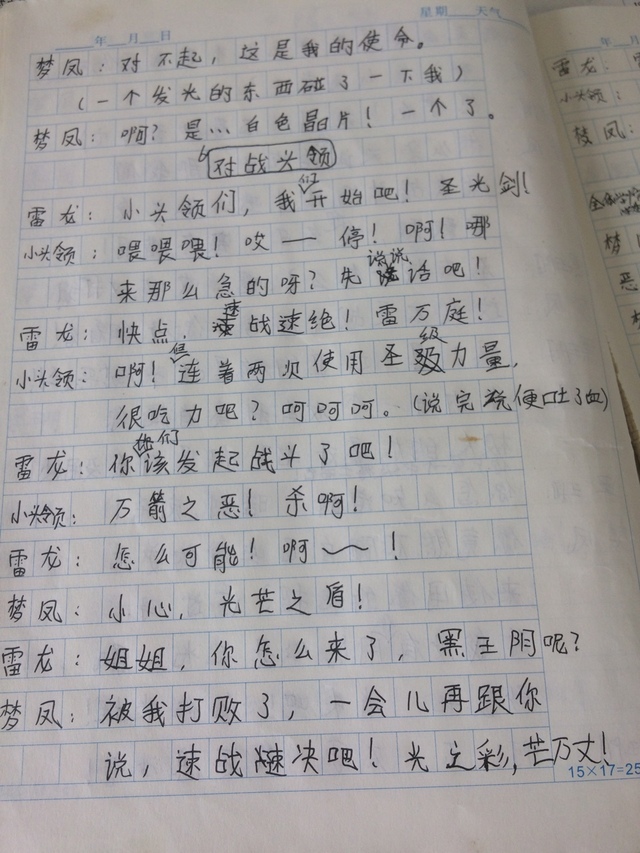 年 月 日 星期 天气
梦凤：对不起，这是我的使命。
（一个发光的东西碰了一下我）
梦凤：啊？是…白色晶片！一个了。
对战头领
雷龙：小头领们，我们开始吧！圣光剑！
小头领：喂喂喂！哎——停！啊！哪
来那么急的呀？先说说话吧！
雷龙：快点，速战速绝！雷万庭！
小头领：啊！但连着两次使用圣级力量，
很吃力吧？呵呵呵。（说完就便吐了血）
雷龙：你们该发起战斗了吧！
小头领：万箭之恶！杀啊！
雷龙：怎么可能！啊～！
梦凤：小心，光芒之盾！
雷龙：姐姐，你怎么来了，黑王阴呢？
梦凤：被我打败了，一会儿再跟你
说，速战速决吧！光之彩，芒万丈！
15×17=25
年 月
雷龙：
小头领：
梦凤：
梦
恶
梦